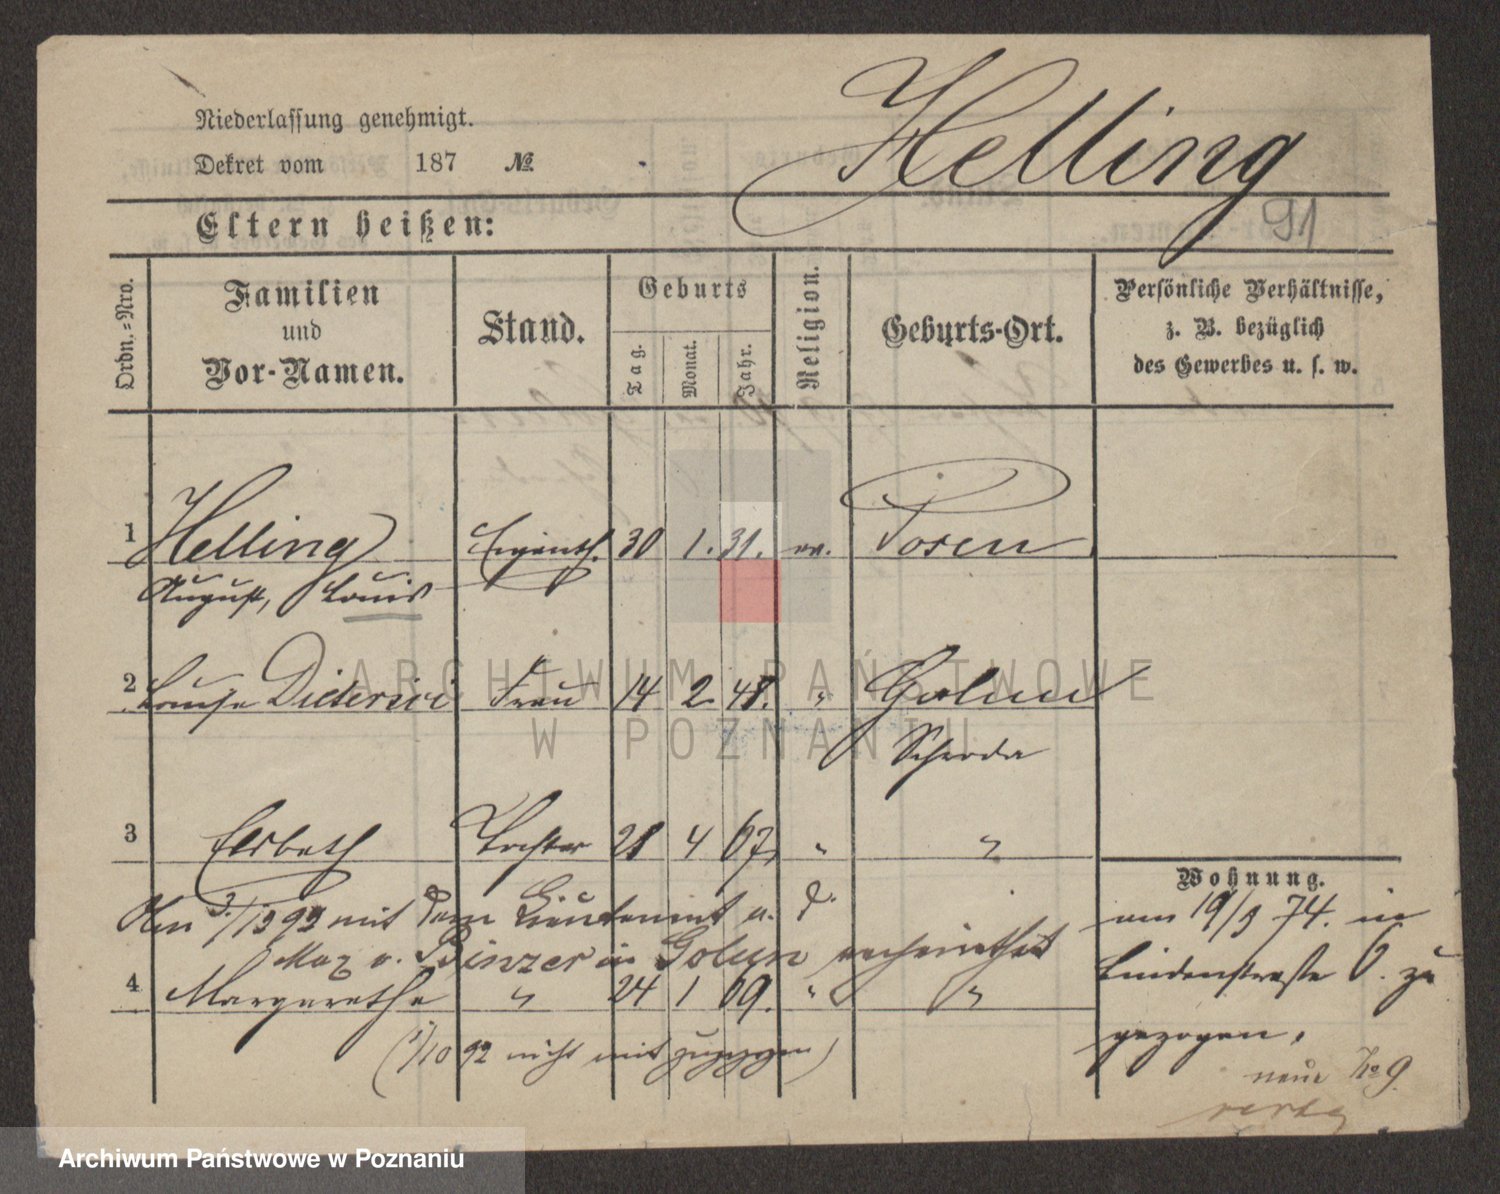 Niederlassung genehmigt.
Dekret vom 187 №
Helling
91
Eltern heißen:
Ordn.=Nro.
Familien
und
Vor-Namen.
Stand.
Geburts
Tag.
Monat.
Jahr.
Religion.
Geburts-Ort.
Persönliche Verhältnisse,
z. B. bezüglich
des Gewerbes u. s. w.
1 Helling Eigenth. 30 1. 31. ev. Posen
August, Louis
2 Louise Dietersici Frau 14 2 48. " Golun
Schroda
3 Elsbeth Tochter 28 4 67, " "
Wohnung.
mit dem Lieutenant a. D.
Max v. Binzer in Golun verheirathet
4 Margarethe " 24 1 69. " "
(1/10 92 nicht mit zugezogen)
am 19/9 74. in
Lindenstraße 6. zu
gezogen.
neue No 9
ARCHIWUM PAŃSTWOWE
W POZNANIU
Archiwum Państwowe w Poznaniu